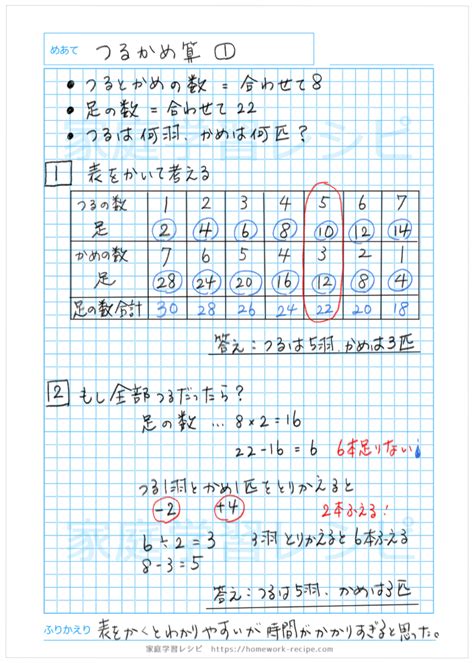 めあて つるかめ算 ①
• つるとかめの数 = 合わせて8
• 足の数 = 合わせて 22
• つるは何羽、かめは何匹?
1 表をかいて考える
つるの数 1 2 3 4 5 6 7
足 2 4 6 8 10 12 14
かめの数 7 6 5 4 3 2 1
足 28 24 20 16 12 8 4
足の数合計 30 28 26 24 22 20 18
答え:つるは5羽、かめは3匹
2 もし全部つるだったら?
足の数 … 8×2=16
22-16=6 6本足りない
つる1羽とかめ1匹をとりかえると
-2 +4 2本ふえる!
6÷2=3 3羽とりかえると6本ふえる
8-3=5
答え:つるは5羽、かめは3匹
ふりかえり 表をかくとわかりやすいが時間がかかりすぎると思った。
家庭学習レシピ https://homework-recipe.com/
家庭学習レシピ
家庭学習レシピ